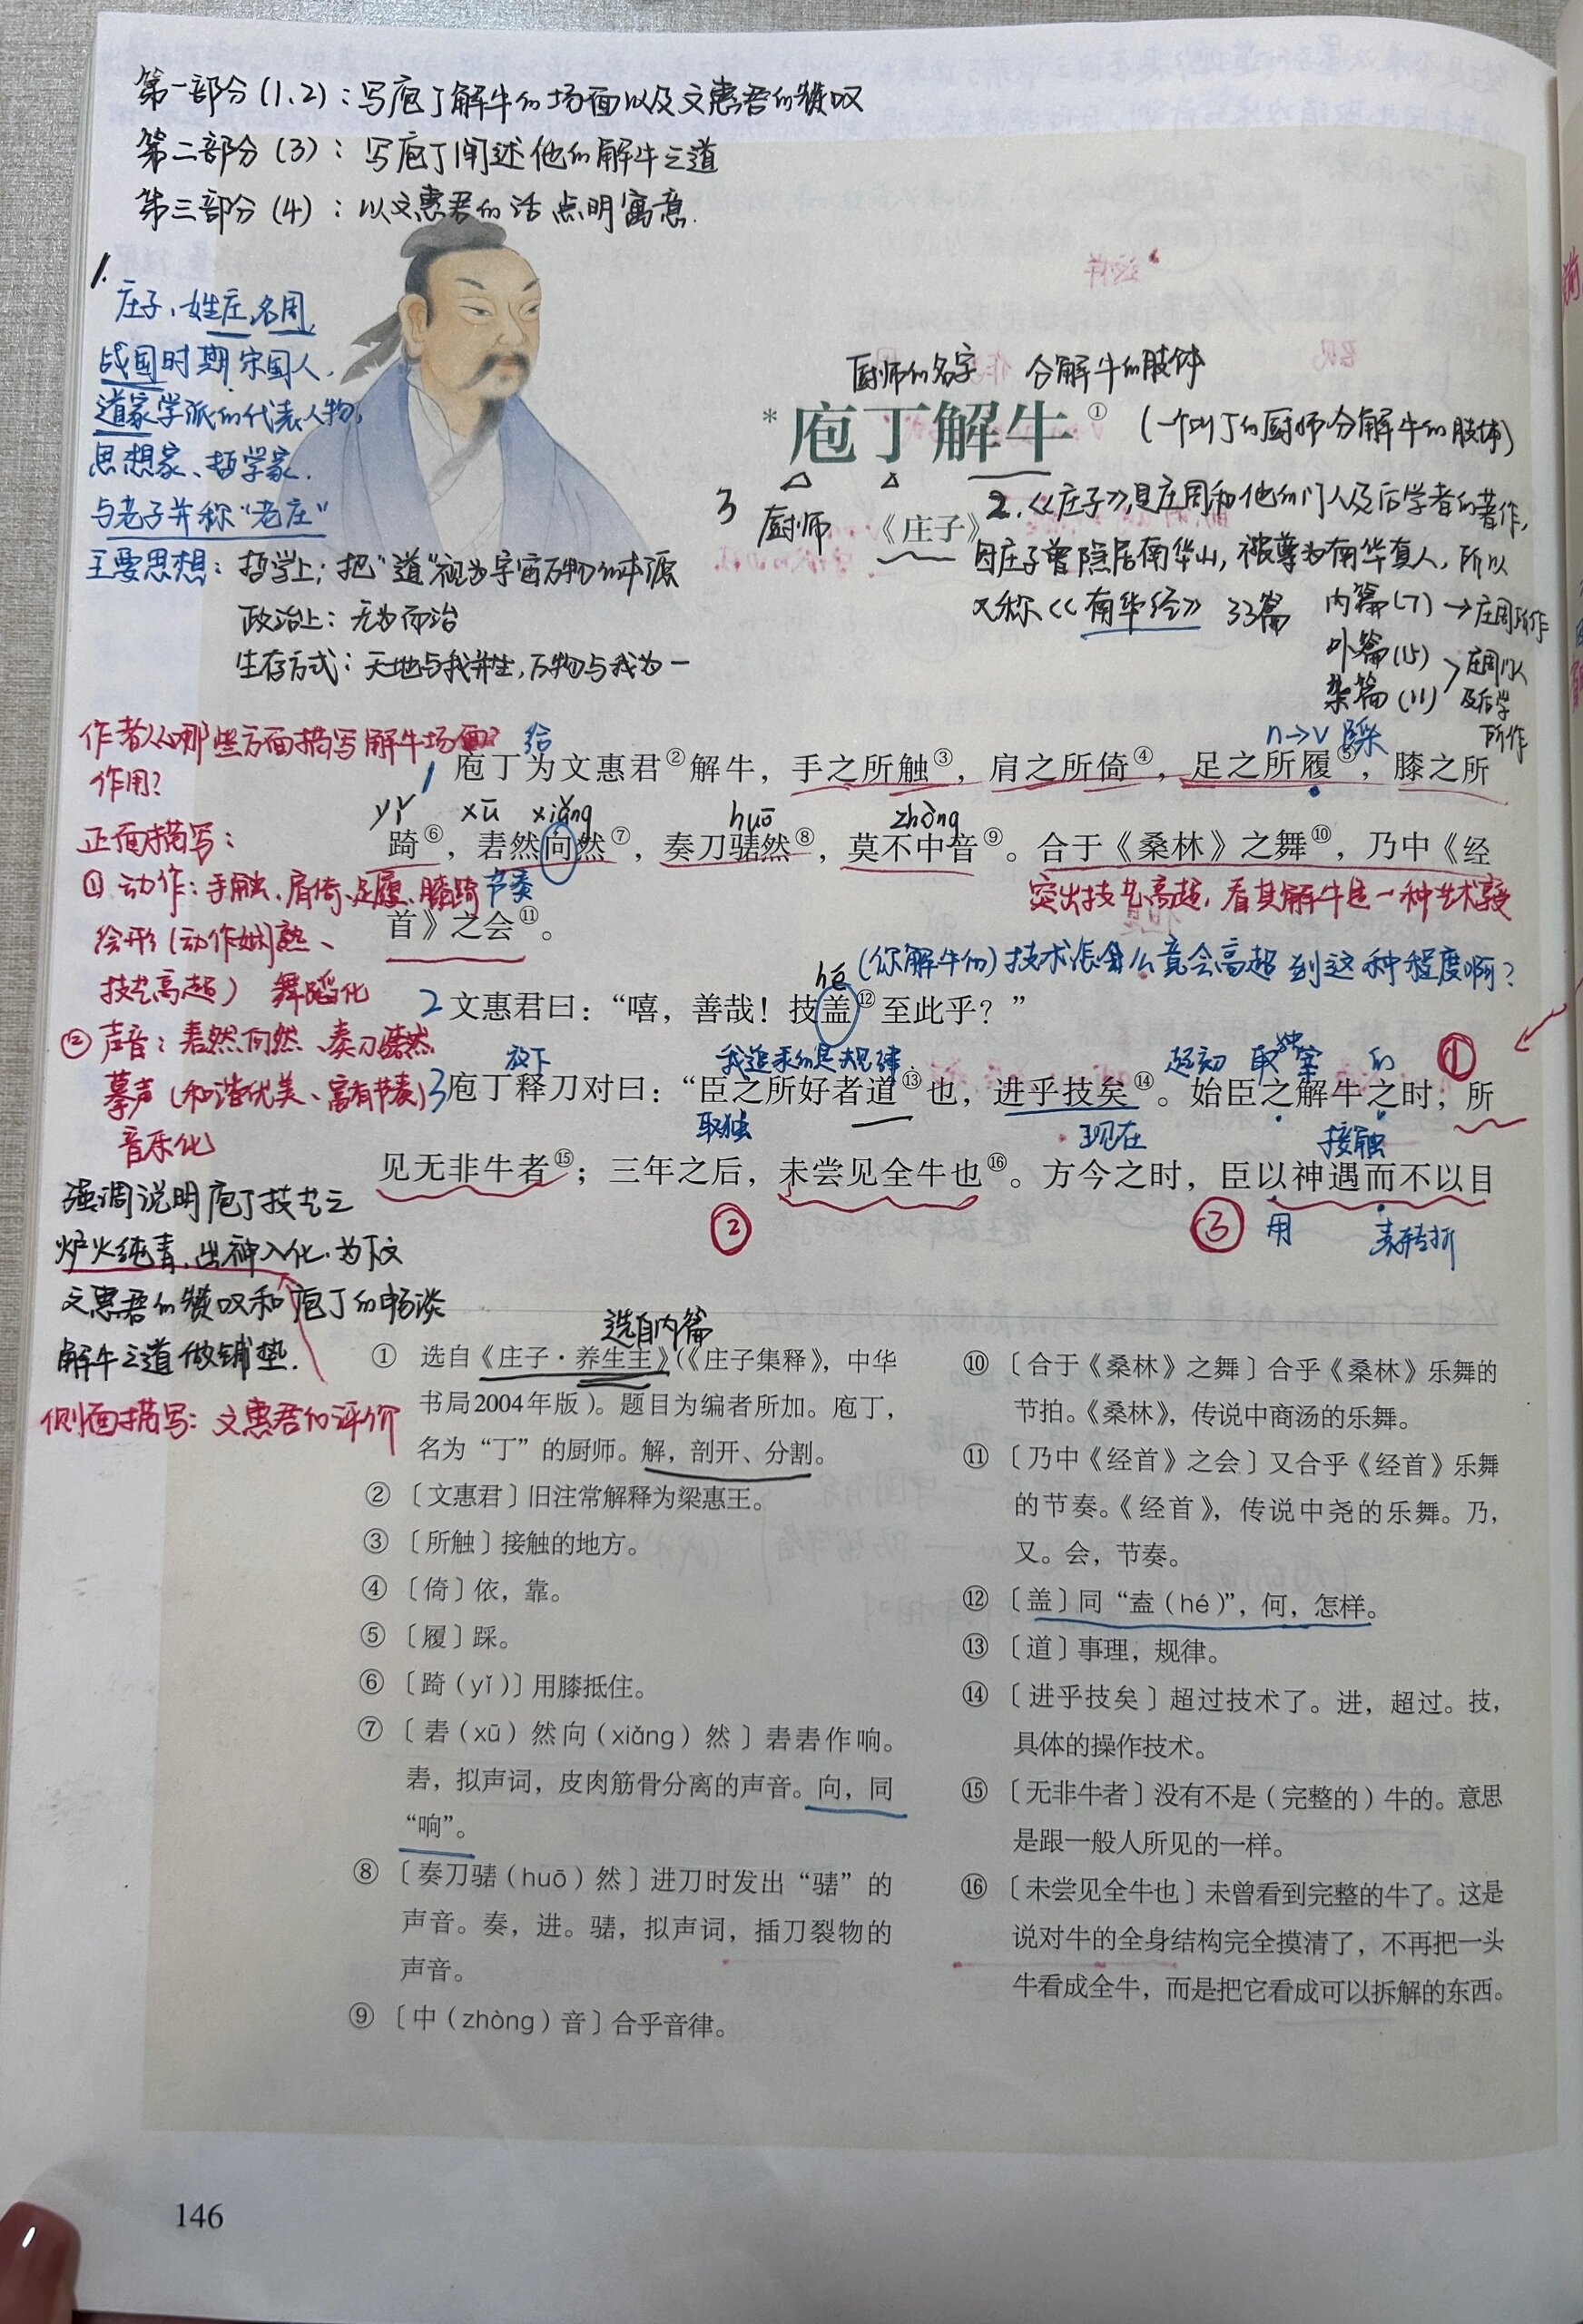 第一部分(1、2)：写庖丁解牛的场面以及文惠君的赞叹
第二部分(3)：写庖丁阐述他的解牛之道
第三部分(4)：以文惠君的话点明寓意.
1.
庄子、姓庄,名周,
战国时期宋国人,
道家学派的代表人物,
思想家、哲学家.
与老子并称“老庄”
主要思想：哲学上：把“道”视为宇宙万物的本源
政治上：无为而治
生存方式：天地与我并生,万物与我为一
厨师的名字 分解牛的肢体
*庖丁解牛①
(一个叫丁的厨师分解牛的肢体)
3 厨师
《庄子》
2.《庄子》是庄周和他的门人及后学者的著作,
因庄子曾隐居南华山,被尊为南华真人,所以
又称《南华经》 33篇 内篇(7)→庄周所作
外篇(15)
杂篇(11)
庄周以
及后学
所作
作者从哪些方面描写解牛场面?
作用?
正面描写：
①动作：手触、肩倚、足履、膝踦
绘形(动作娴熟、
技艺高超) 舞蹈化
②声音：砉然向然、奏刀騞然
摹声(和谐优美、富有节奏)
音乐化
强调说明庖丁技艺之
炉火纯青,出神入化.为下文
文惠君的赞叹和庖丁的畅谈
解牛之道做铺垫.
侧面描写：文惠君的评价
给
n→v 踩
1 庖丁为文惠君②解牛，手之所触③，肩之所倚④，足之所履⑤，膝之所
yǐ xū xiǎng huō zhòng
踦⑥，砉然向然⑦，奏刀騞然⑧，莫不中音⑨。合于《桑林》之舞⑩，乃中《经
节奏
突出技艺高超,看其解牛是一种艺术享受
首》之会⑪。
(你解牛的)技术怎么竟会高超到这种程度啊?
hé
2文惠君曰：“嘻，善哉！技盖⑫至此乎？”
放下 我追求的是规律, 起初 取独 宰 的 ①
3庖丁释刀对曰：“臣之所好者道⑬也，进乎技矣⑭。始臣之解牛之时，所
取独 现在 接触
见无非牛者⑮；三年之后，未尝见全牛也⑯。方今之时，臣以神遇而不以目
② ③ 用 表转折
选自内篇
① 选自《庄子·养生主》（《庄子集释》，中华
书局2004年版）。题目为编者所加。庖丁，
名为“丁”的厨师。解，剖开、分割。
② 〔文惠君〕旧注常解释为梁惠王。
③ 〔所触〕接触的地方。
④ 〔倚〕依，靠。
⑤ 〔履〕踩。
⑥ 〔踦（yǐ）〕用膝抵住。
⑦ 〔砉（xū）然向（xiǎng）然〕砉砉作响。
砉，拟声词，皮肉筋骨分离的声音。向，同
“响”。
⑧ 〔奏刀騞（huō）然〕进刀时发出“騞”的
声音。奏，进。騞，拟声词，插刀裂物的
声音。
⑨ 〔中（zhòng）音〕合乎音律。
⑩ 〔合于《桑林》之舞〕合乎《桑林》乐舞的
节拍。《桑林》，传说中商汤的乐舞。
⑪ 〔乃中《经首》之会〕又合乎《经首》乐舞
的节奏。《经首》，传说中尧的乐舞。乃，
又。会，节奏。
⑫ 〔盖〕同“盍（hé）”，何，怎样。
⑬ 〔道〕事理，规律。
⑭ 〔进乎技矣〕超过技术了。进，超过。技，
具体的操作技术。
⑮ 〔无非牛者〕没有不是（完整的）牛的。意思
是跟一般人所见的一样。
⑯ 〔未尝见全牛也〕未曾看到完整的牛了。这是
说对牛的全身结构完全摸清了，不再把一头
牛看成全牛，而是把它看成可以拆解的东西。
146